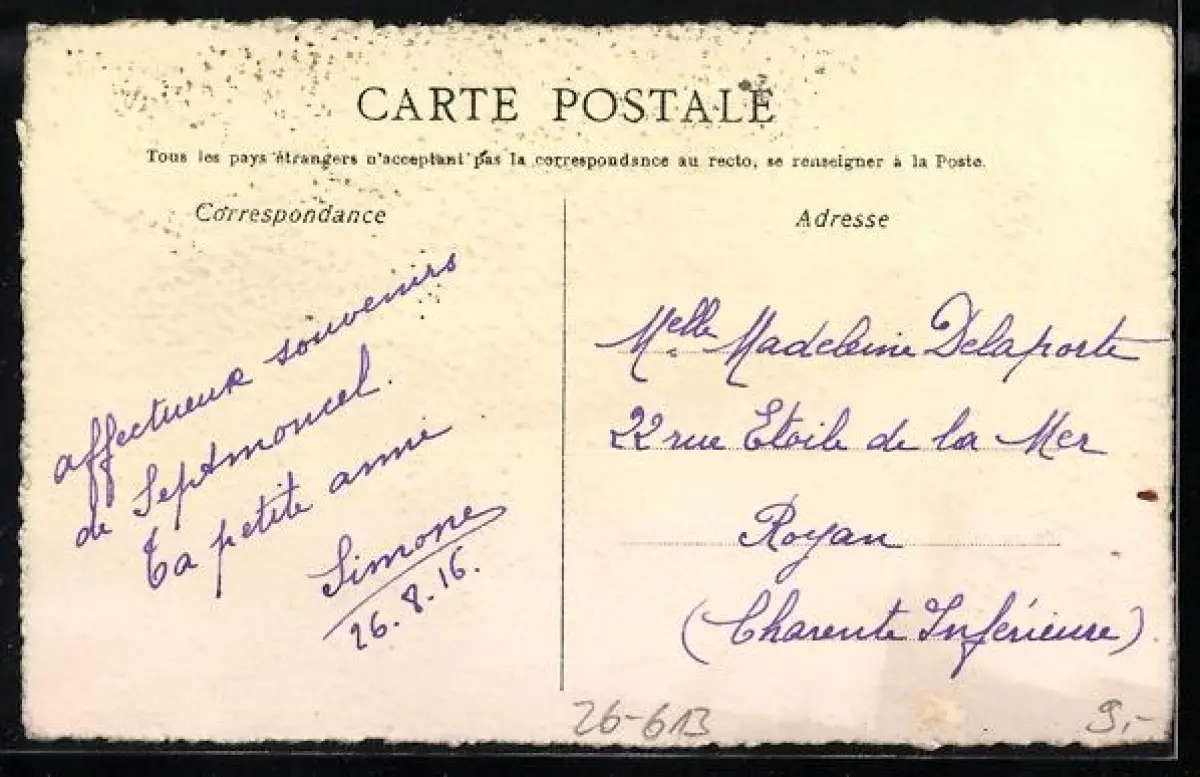 CARTE POSTALE
Tous les pays étrangers n'acceptant pas la correspondance au recto, se renseigner à la Poste.
Correspondance
affectueux souvenirs
de Septmoncel.
Ta petite amie
Simone
26.8.16.
Adresse
Melle Madeleine Delaporte
22 rue Etoile de la Mer
Royan
(Charente Inférieure)
26-613
9.-